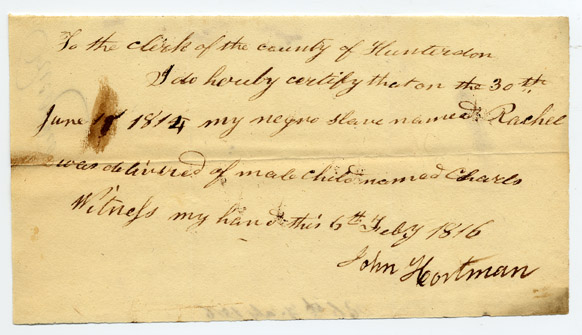 To the clerk of the county of Hunterdon
I do hereby certify that on the 30th
June 1814 my negro slave named Rachel
was delivered of male child named Charls
Witness my hand this 6th Feby 1816
John Hortman